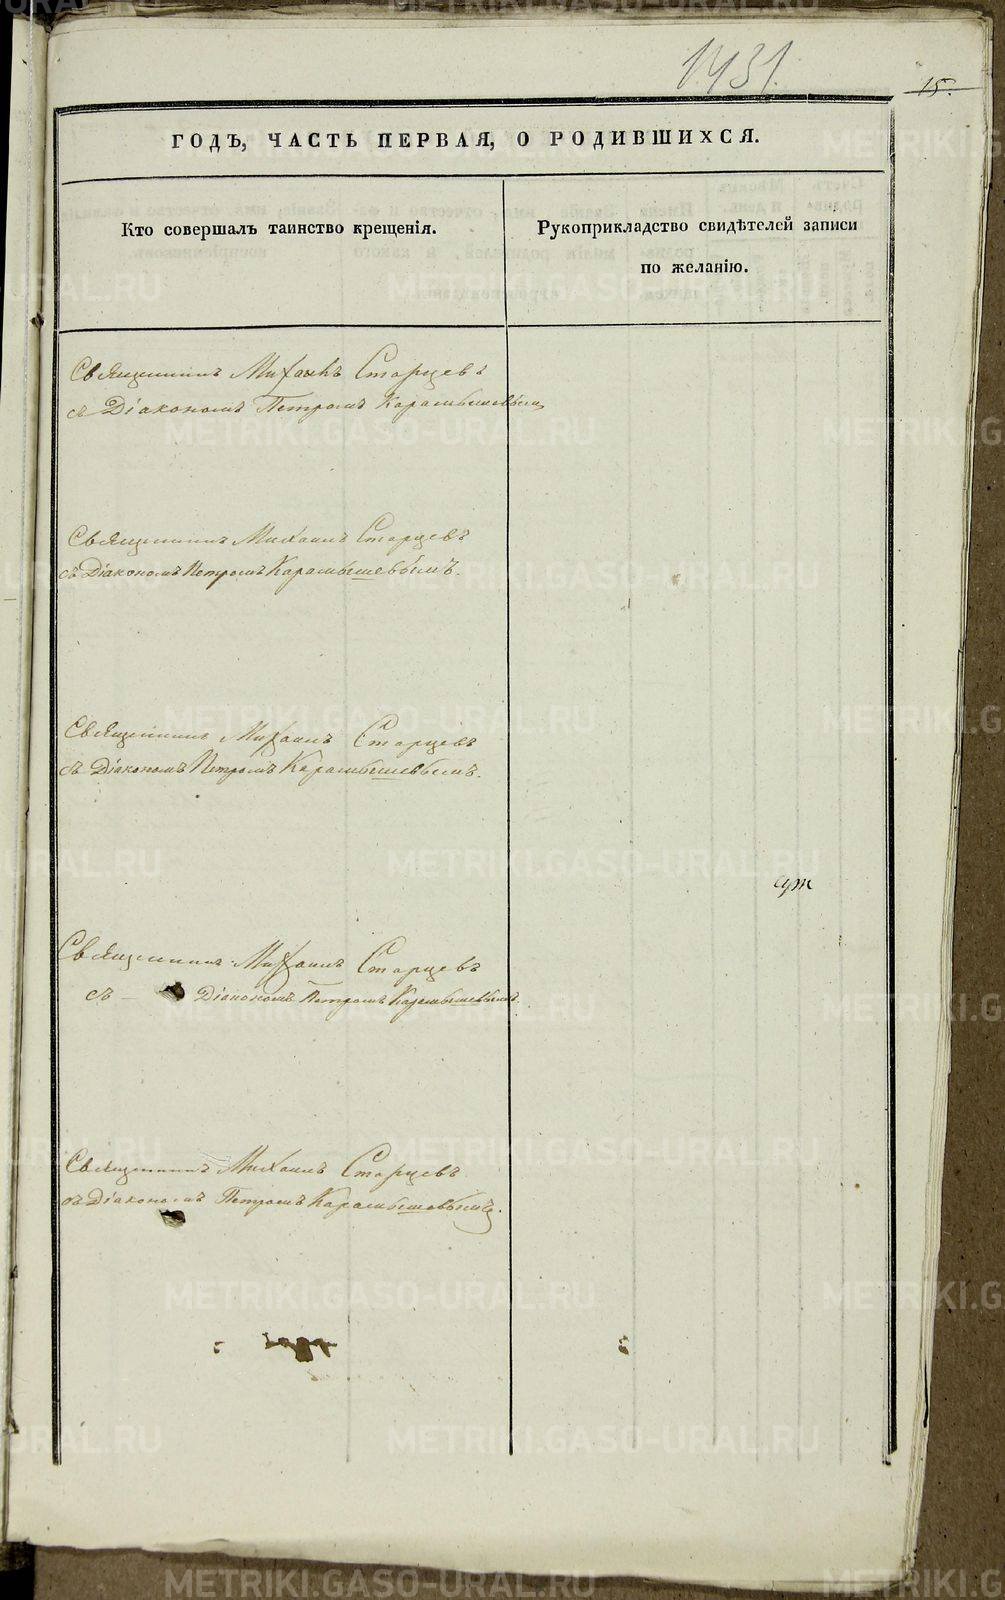 1431.
15.
ГОДЪ, ЧАСТЬ ПЕРВАЯ, О РОДИВШИХСЯ.
Кто совершалъ таинство крещенія.
Рукоприкладство свидѣтелей записи
по желанію.
Священникъ Михаилъ Старцевъ
съ Діакономъ Петромъ Карамышевымъ
Священникъ Михаилъ Старцевъ
съ Діакономъ Петромъ Карамышевымъ.
Священникъ Михаилъ Старцевъ
съ Діакономъ Петромъ Карамышевымъ.
Священникъ Михаилъ Старцевъ
съ Діакономъ Петромъ Карамышевымъ.
Священникъ Михаилъ Старцевъ
съ Діакономъ Петромъ Карамышевымъ.
METRIKI.GASO-URAL.RU